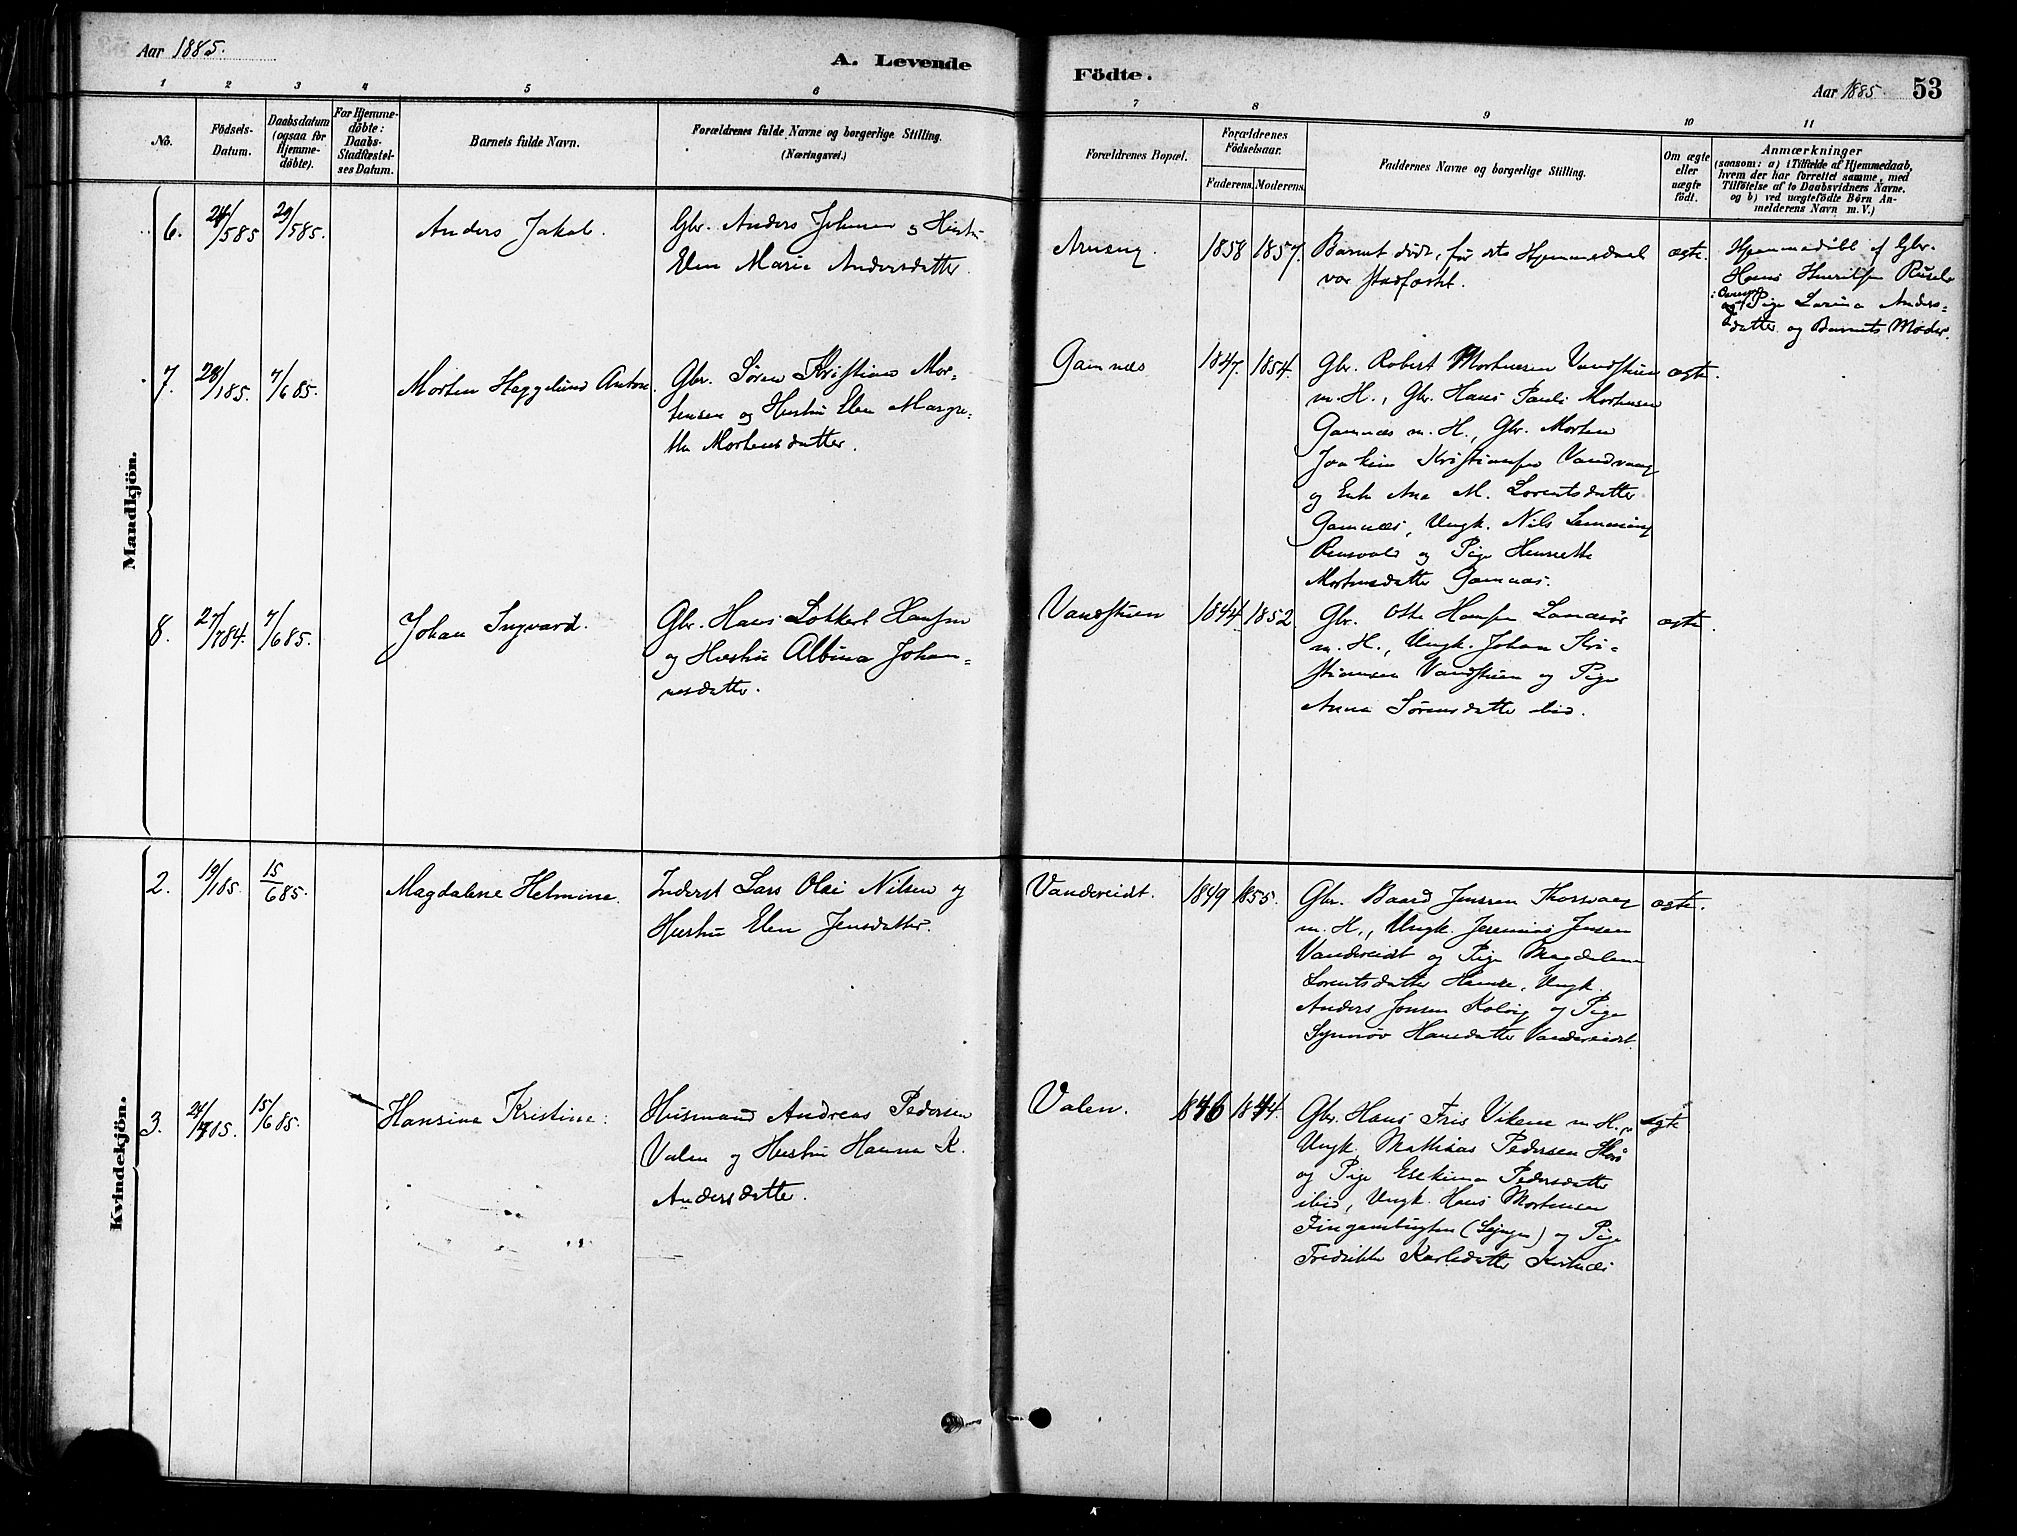 Aar 1885.
A. Levende
Födte.
Aar 1885
53
1 2 3 4 5 6 7 8 9 10 11
No.
Födsels-
Datum.
Daabsdatum
(ogsaa for
Hjemme-
döbte).
For Hjemme-
döbte:
Daabs-
Stadfæstel-
ses Datum.
Barnets fulde Navn.
Forældrenes fulde Navne og borgerlige Stilling.
(Næringsvei.)
Forældrenes Bopæl.
Forældrenes
Födselsaar.
Faderens. Moderens.
Faddernes Navne og borgerlige Stilling.
Om ægte
eller
uægte
födt.
Anmærkninger
(saasom: a) i Tilfælde af Hjemmedaab,
hvem der har forrettet samme, med
Tilföielse af to Daabsvidners Navne.
og b) ved uægtefödte Börn An-
melderens Navn m. V.)
Mandkjön.
6. 24/585 29/585.
Anders Jakob.
Gbr. Anders Johnsen og Hustru
Elen Marie Andersdatter.
1858 1857.
Barnet döde, før dets Hjemmedaab
var stadfæstet.
ægte.
Hjemmedöbt af Gbr.
Hans Henriksen
og Pige Larina Anders-
datter og Barnets Moder.
7. 28/185. 7/685.
Morten Heggelund Anton.
Gbr. Søren Kristian Mor-
tensen og Hustru Elen Margre-
the Mortensdatter.
Gamnæs
1847. 1854.
Gbr. Robert Mortensen Vandstuen
m. H., Gbr. Hans Pauli Mortensen
Gamnæs m. H., Gbr. Morten
Joakim Kristiansen Vandvaag
og Enke Ana M. Lorentsdatter
Gamnæs, Ungk. Nils
og Pige Henrette
Mortensdatter Gamnæs.
ægte.
8. 27/784. 7/685.
Johan Ingvard.
Gbr. Hans Løkkert Hansen
og Hustru Albina Johan-
nesdatter.
Vandstuen
1844. 1852.
Gbr. Otto Hansen Lanesør
m. H., Ungk. Johan Kri-
stiansen Vandstuen og Pige
Anna Sørensdatter ibid.
ægte.
Kvindekjön.
2. 19/185. 15/685.
Magdalene Helmine.
Inderst Lars Olai Nilsen og
Hustru Elen Jensdatter.
Vandereidt.
1849 1855.
Gbr. Baard Jenssen Thorsvaag
m. H., Ungk. Jeremias Jensen
Vandereidt og Pige Magdalena
Lorentsdatter Hamre, Ungk.
Anders Jonsen Kalvig og Pige
Synnøv Hansdatter Vandereidt.
ægte.
3. 24/485. 15/685.
Hansine Kristine.
Husmand Andreas Pedersen
Valen og Hustru Hanna K.
Andersdatter.
Valen.
1846 1844.
Gbr. Hans Fris Vikene m. H.,
Ungk. Mathias Pedersen
og Pige Esekina Pedersdatter
ibid, Ungk. Hans Mortensen
(Lyngen) og Pige
Fredrikke Karlsdatter
ægte